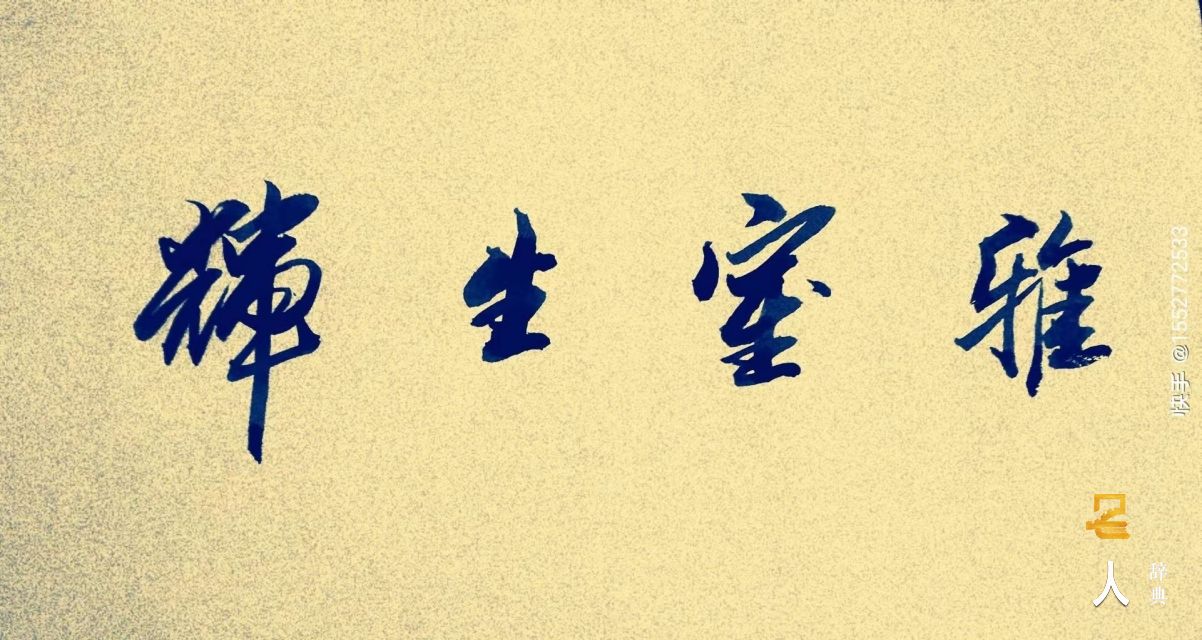 雅室生輝
快手 @1552772533
名人
辞典